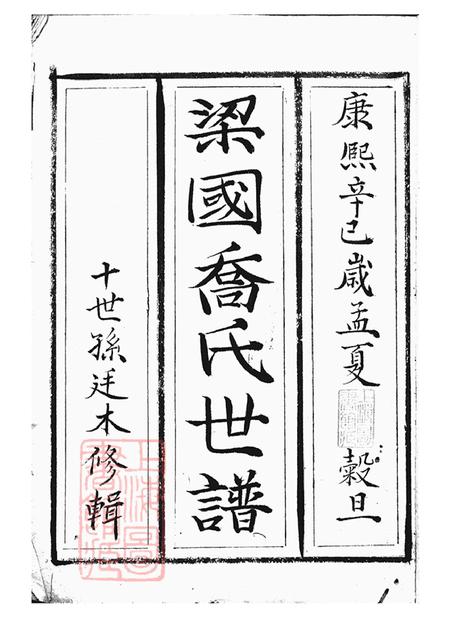 康熙辛巳歲孟夏 穀旦
梁國喬氏世譜
十世孫廷木修輯